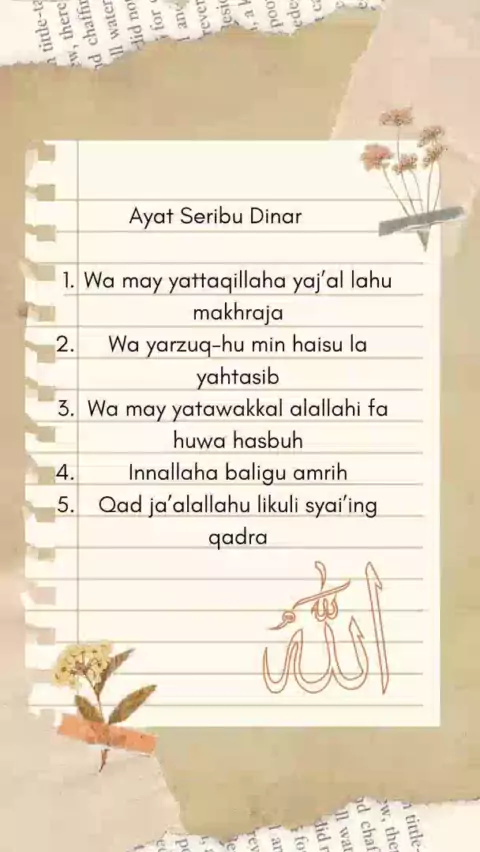 Ayat Seribu Dinar
1. Wa may yattaqillaha yaj'al lahu
makhraja
2. Wa yarzuq-hu min haisu la
yahtasib
3. Wa may yatawakkal alallahi fa
huwa hasbuh
4. Innallaha baligu amrih
5. Qad ja'alallahu likuli syai'ing
qadra
الله